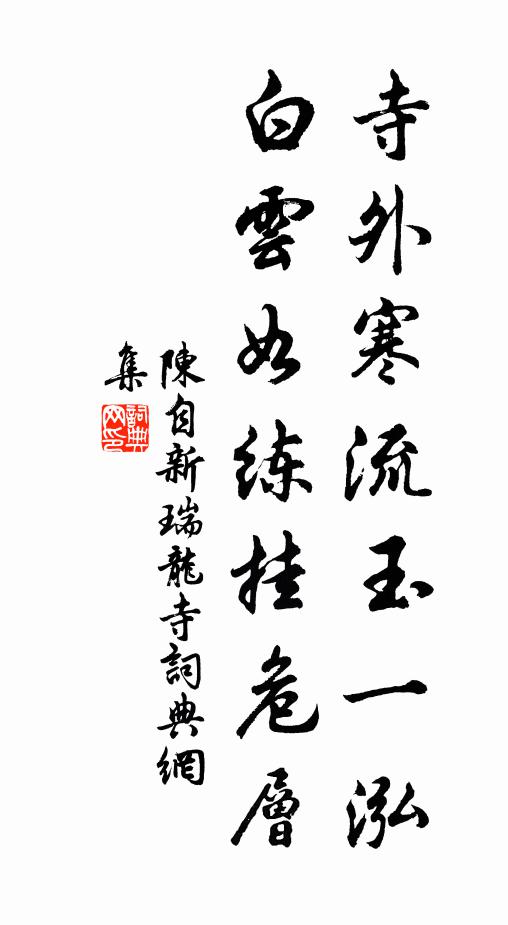 寺外寒流玉一泓
白雲如練挂危層
陳自新瑞龍寺詞典網
集
詞典
网印